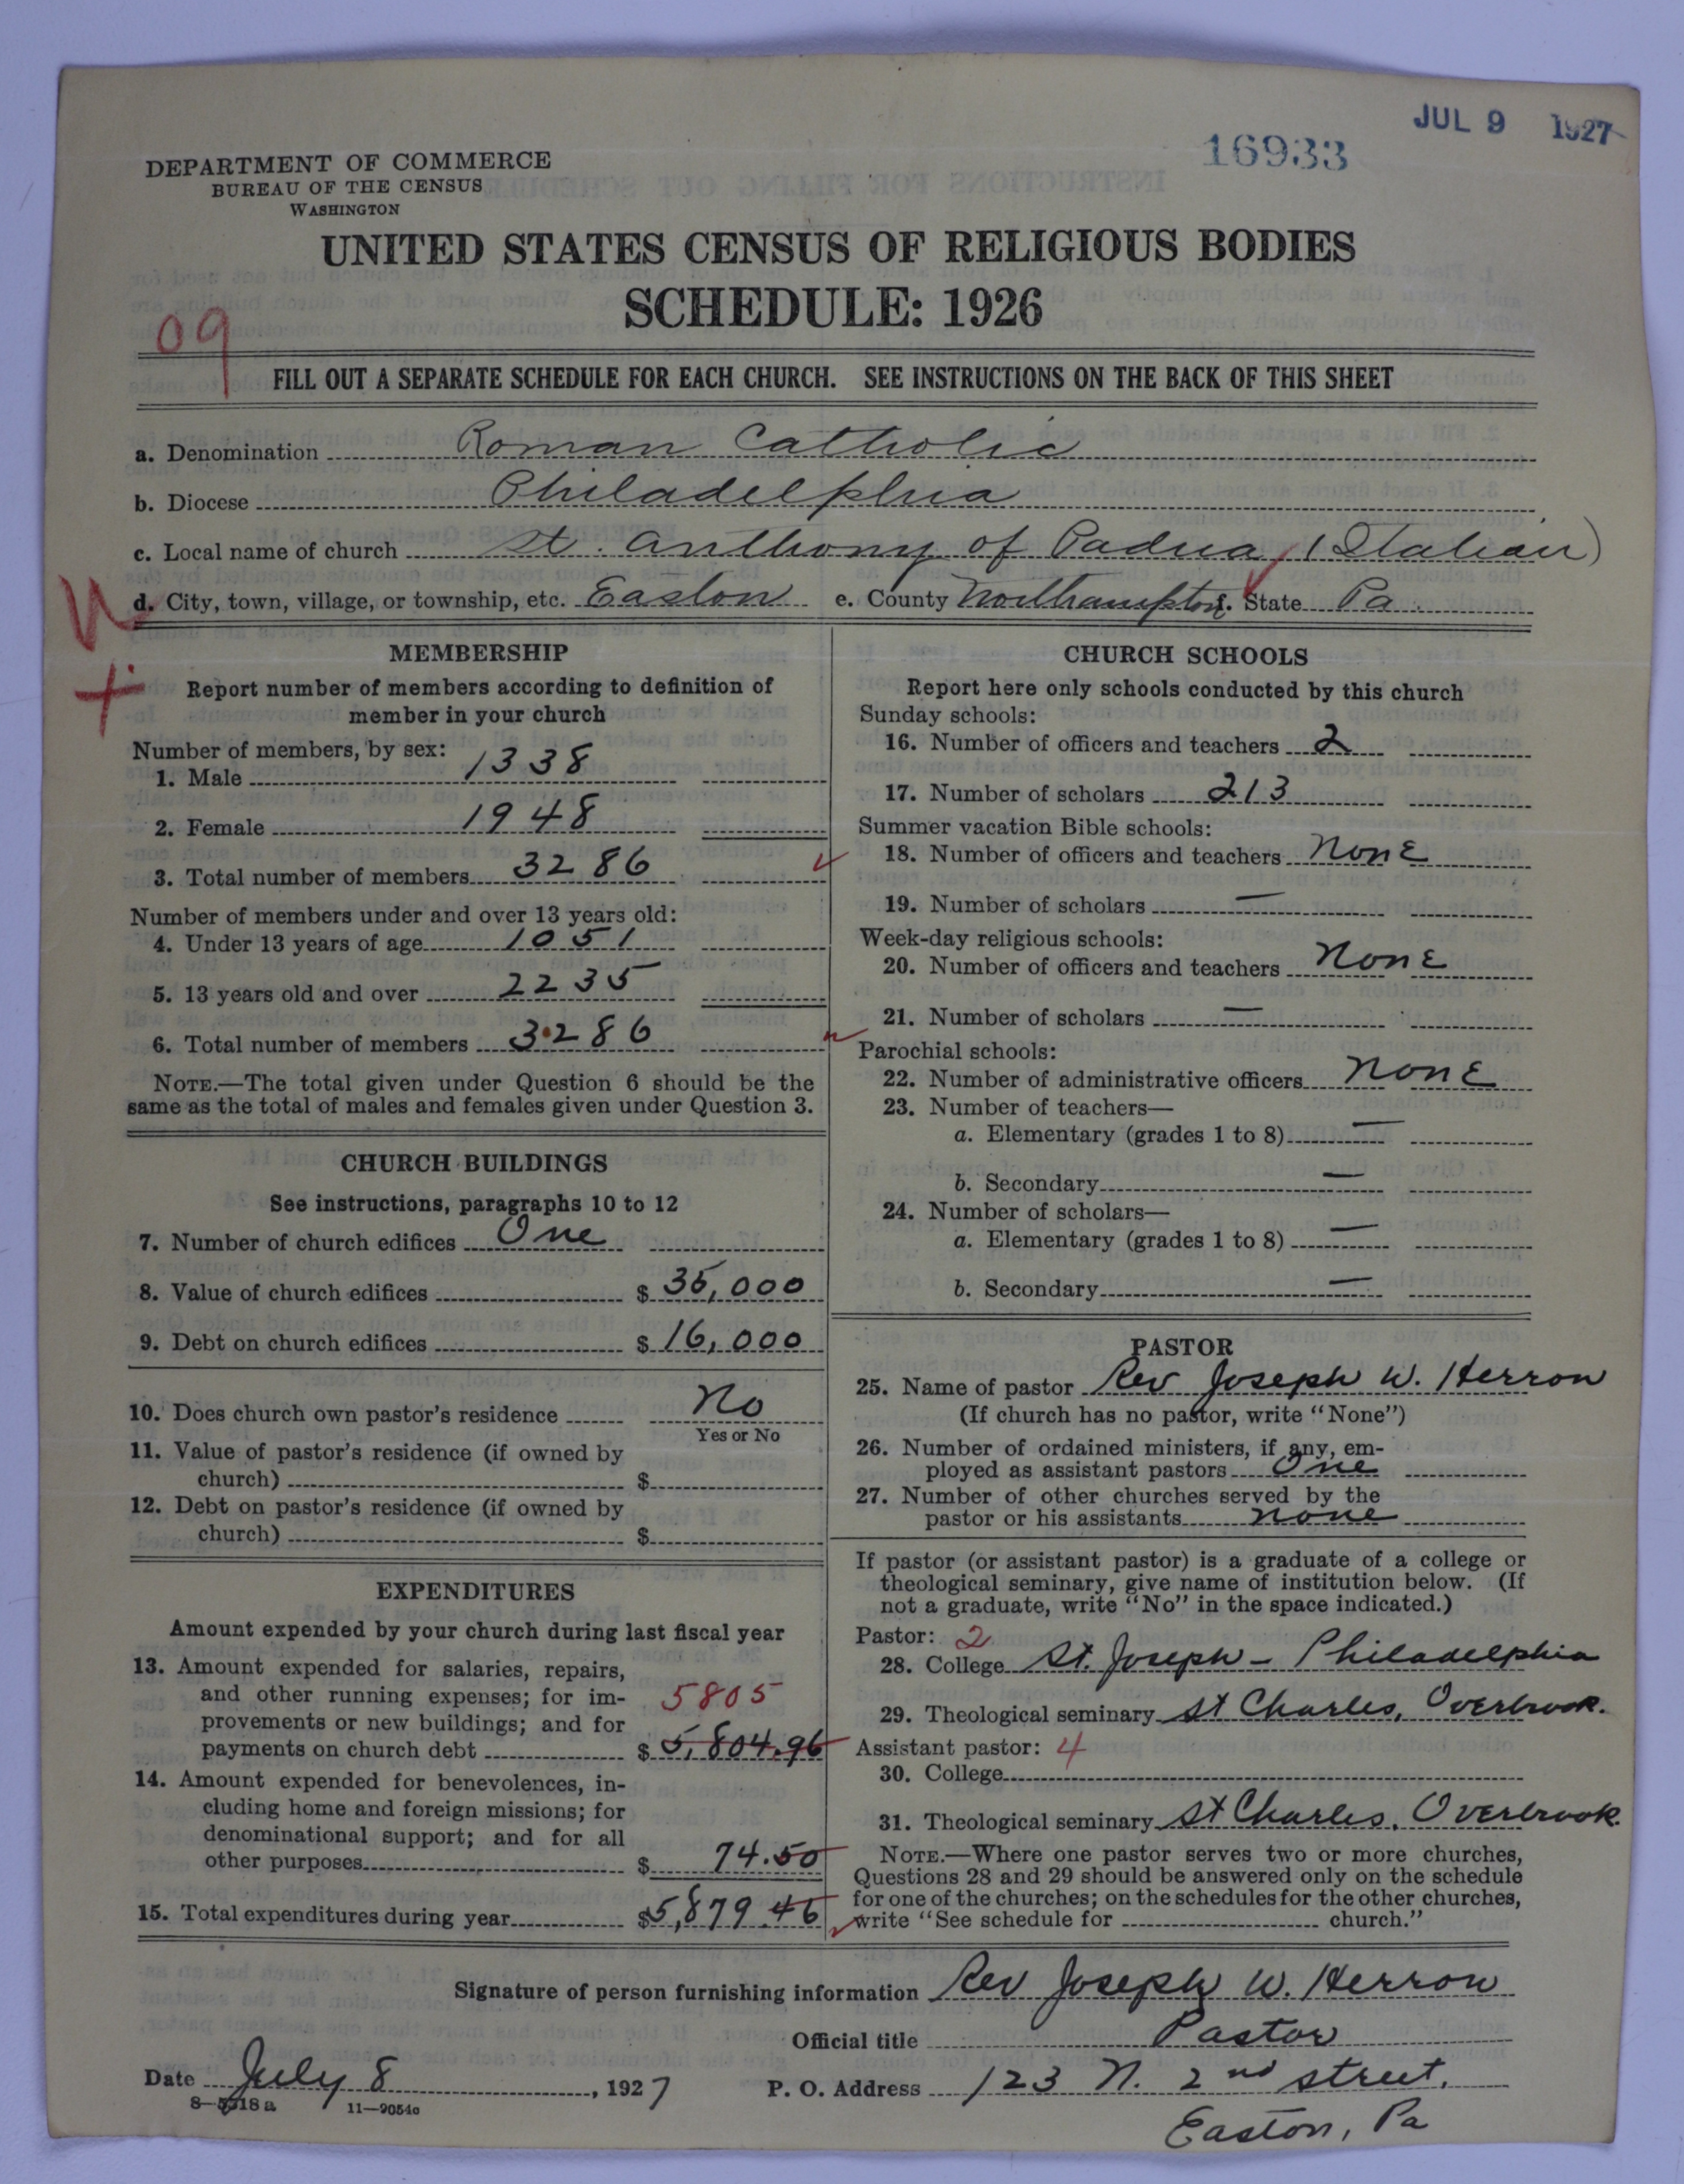 JUL 9 1927
16933
DEPARTMENT OF COMMERCE
BUREAU OF THE CENSUS
WASHINGTON
UNITED STATES CENSUS OF RELIGIOUS BODIES
SCHEDULE: 1926
09
FILL OUT A SEPARATE SCHEDULE FOR EACH CHURCH. SEE INSTRUCTIONS ON THE BACK OF THIS SHEET
a. Denomination Roman Catholic
b. Diocese Philadelphia
c. Local name of church St. Anthony of Padua (Italian)
d. City, town, village, or township, etc. Easton e. County Northampton f. State Pa.
MEMBERSHIP
Report number of members according to definition of
member in your church
Number of members, by sex:
1. Male 1338
2. Female 1948
3. Total number of members 3286
Number of members under and over 13 years old:
4. Under 13 years of age 1051
5. 13 years old and over 2235
6. Total number of members 3286
NOTE.—The total given under Question 6 should be the
same as the total of males and females given under Question 3.
CHURCH BUILDINGS
See instructions, paragraphs 10 to 12
7. Number of church edifices One
8. Value of church edifices $ 35,000
9. Debt on church edifices $ 16,000
10. Does church own pastor's residence No
Yes or No
11. Value of pastor's residence (if owned by
church) $
12. Debt on pastor's residence (if owned by
church) $
EXPENDITURES
Amount expended by your church during last fiscal year
13. Amount expended for salaries, repairs,
and other running expenses; for im- 5805
provements or new buildings; and for
payments on church debt $ 5,804.96
14. Amount expended for benevolences, in-
cluding home and foreign missions; for
denominational support; and for all
other purposes $ 74.50
15. Total expenditures during year $5,879.46
CHURCH SCHOOLS
Report here only schools conducted by this church
Sunday schools:
16. Number of officers and teachers 2
17. Number of scholars 213
Summer vacation Bible schools:
18. Number of officers and teachers None
19. Number of scholars —
Week-day religious schools:
20. Number of officers and teachers None
21. Number of scholars —
Parochial schools:
22. Number of administrative officers None
23. Number of teachers—
a. Elementary (grades 1 to 8) —
b. Secondary —
24. Number of scholars—
a. Elementary (grades 1 to 8) —
b. Secondary —
PASTOR
25. Name of pastor Rev Joseph W. Herron
(If church has no pastor, write "None")
26. Number of ordained ministers, if any, em-
ployed as assistant pastors One
27. Number of other churches served by the
pastor or his assistants none
If pastor (or assistant pastor) is a graduate of a college or
theological seminary, give name of institution below. (If
not a graduate, write "No" in the space indicated.)
Pastor: 2
28. College St. Joseph - Philadelphia
29. Theological seminary St Charles, Overbrook.
Assistant pastor: 4
30. College
31. Theological seminary St Charles, Overbrook.
NOTE.—Where one pastor serves two or more churches,
Questions 28 and 29 should be answered only on the schedule
for one of the churches; on the schedules for the other churches,
write "See schedule for church."
Signature of person furnishing information Rev Joseph W. Herron
Official title Pastor
Date July 8, 1927 P. O. Address 123 N. 2nd street,
8—5318a 11—9054c
Easton, Pa